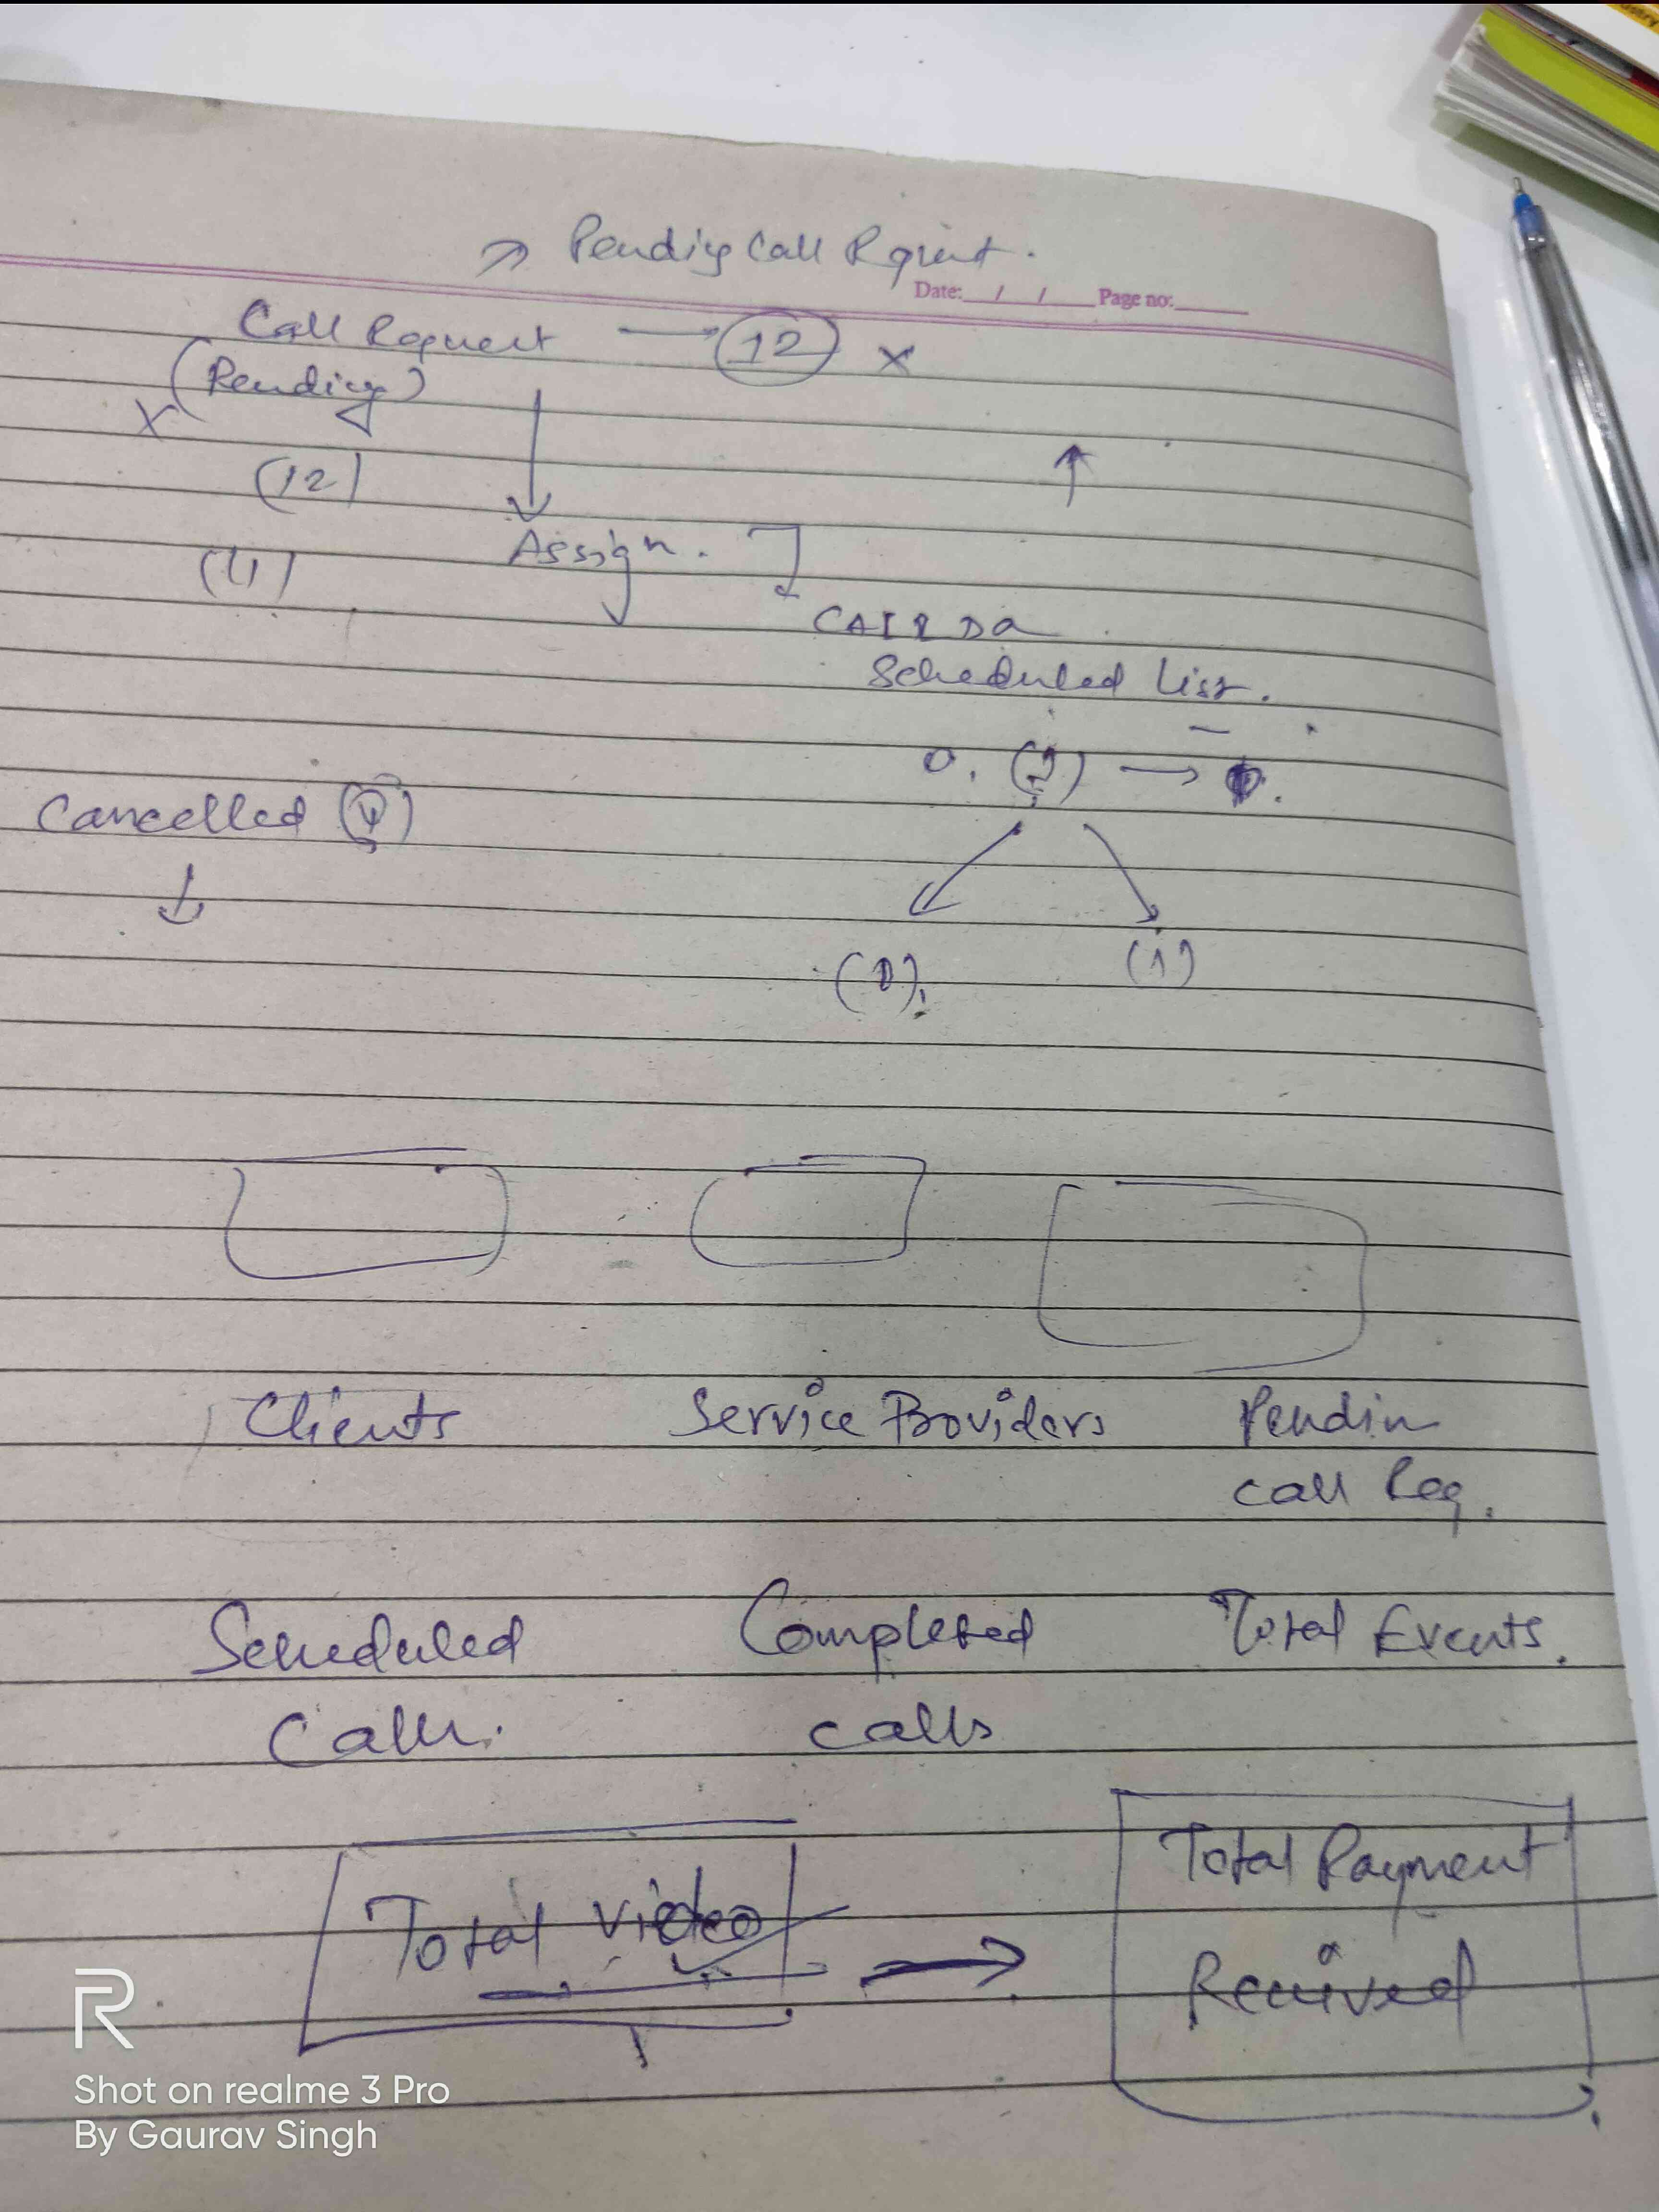 Pending Call Rquest.
Date: / / Page no:
Call Request → 12 x
(Pending)
x
(12)
Assign.
(11)
Scheduled List.
0.
Cancelled
(1)
Clients Service Providers Pendin
call Req.
Scheduled Completed Total Events.
Calls. calls
Total Payment
Total Video →
Received
R
Shot on realme 3 Pro
By Gaurav Singh